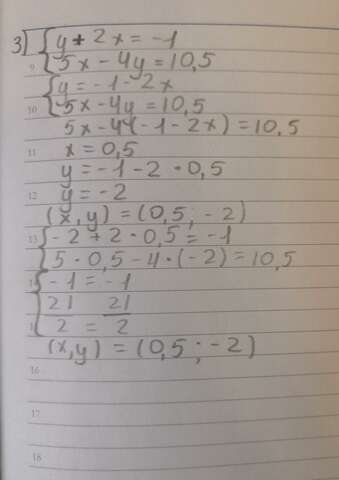 3) { y + 2x = -1
9 { 5x - 4y = 10,5
{ y = -1 - 2x
10 { 5x - 4y = 10,5
5x - 4·(-1 - 2x) = 10,5
11 x = 0,5
y = -1 - 2 · 0,5
12 y = -2
(x, y) = (0,5 ; -2)
13 { -2 + 2 · 0,5 = -1
{ 5 · 0,5 - 4 · (-2) = 10,5
{ -1 = -1
21/2 = 21/2
(x, y) = (0,5 ; -2)
16
17
18